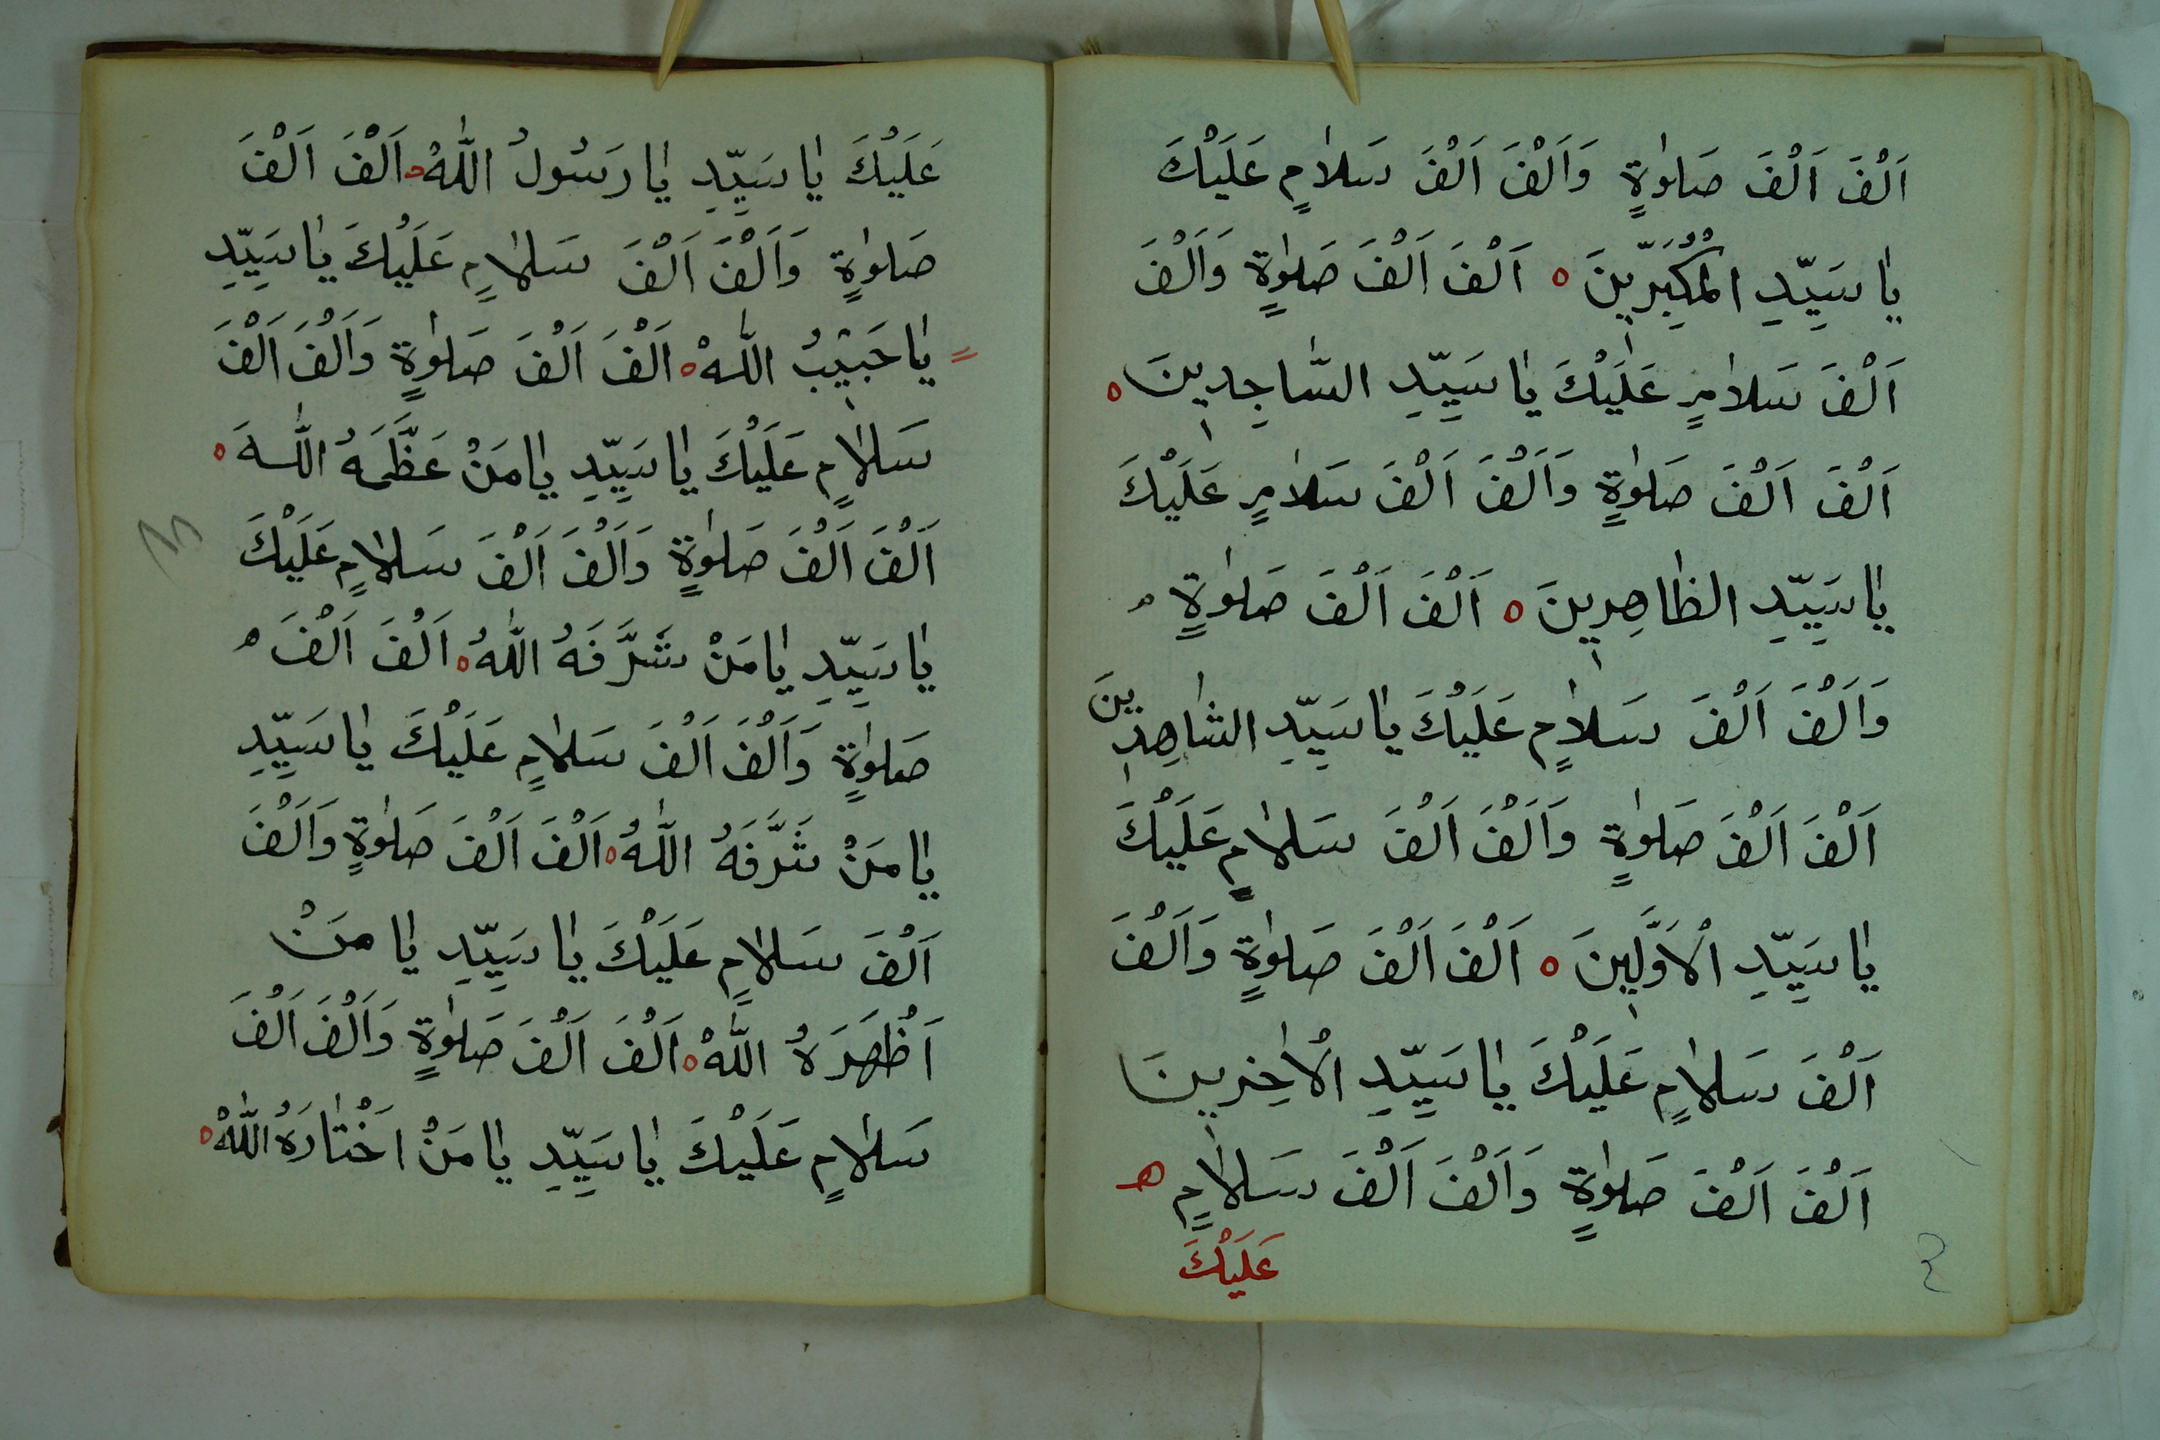 اَلْفَ اَلْفَ صَلٰوةٍ وَاَلْفَ اَلْفَ سَلاٰمٍ عَلَيْكَ
يٰا سَيِّدِ الْمُكَبِّرِينَ ه اَلْفَ اَلْفَ صَلٰوةٍ وَاَلْفَ
اَلْفَ سَلاٰمٍ عَلَيْكَ يٰا سَيِّدِ السّٰاجِدِينَ ه
اَلْفَ اَلْفَ صَلٰوةٍ وَاَلْفَ اَلْفَ سَلاٰمٍ عَلَيْكَ
يٰا سَيِّدِ الظٰاهِرِينَ ه اَلْفَ اَلْفَ صَلٰوةٍ
وَاَلْفَ اَلْفَ سَلاٰمٍ عَلَيْكَ يٰا سَيِّدِ الشٰاهِدِينَ
اَلْفَ اَلْفَ صَلٰوةٍ وَاَلْفَ اَلْفَ سَلاٰمٍ عَلَيْكَ
يٰا سَيِّدِ الْاَوَّلِينَ ه اَلْفَ اَلْفَ صَلٰوةٍ وَاَلْفَ
اَلْفَ سَلاٰمٍ عَلَيْكَ يٰا سَيِّدِ الْاٰخِرِينَ
اَلْفَ اَلْفَ صَلٰوةٍ وَاَلْفَ اَلْفَ سَلاٰمٍ ه
عَلَيْكَ
عَلَيْكَ يٰا سَيِّدِ يٰا رَسُولُ اللّٰهْ ه اَلْفَ اَلْفَ
صَلٰوةٍ وَاَلْفَ اَلْفَ سَلاٰمٍ عَلَيْكَ يٰا سَيِّدِ
يٰا حَبِيْبُ اللّٰهْ ه اَلْفَ اَلْفَ صَلٰوةٍ وَاَلْفَ اَلْفَ
سَلاٰمٍ عَلَيْكَ يٰا سَيِّدِ يٰا مَنْ عَظَّمَهُ اللّٰهَ ه
اَلْفَ اَلْفَ صَلٰوةٍ وَاَلْفَ اَلْفَ سَلاٰمٍ عَلَيْكَ
يٰا سَيِّدِ يٰا مَنْ شَرَّفَهُ اللّٰهُ ه اَلْفَ اَلْفَ
صَلٰوةٍ وَاَلْفَ اَلْفَ سَلاٰمٍ عَلَيْكَ يٰا سَيِّدِ
يٰا مَنْ شَرَّفَهُ اللّٰهُ ه اَلْفَ اَلْفَ صَلٰوةٍ وَاَلْفَ
اَلْفَ سَلاٰمٍ عَلَيْكَ يٰا سَيِّدِ يٰا مَنْ
اَظْهَرَهُ اللّٰهْ ه اَلْفَ اَلْفَ صَلٰوةٍ وَاَلْفَ اَلْفَ
سَلاٰمٍ عَلَيْكَ يٰا سَيِّدِ يٰا مَنْ اخْتٰارَهُ اللّٰهْ ه